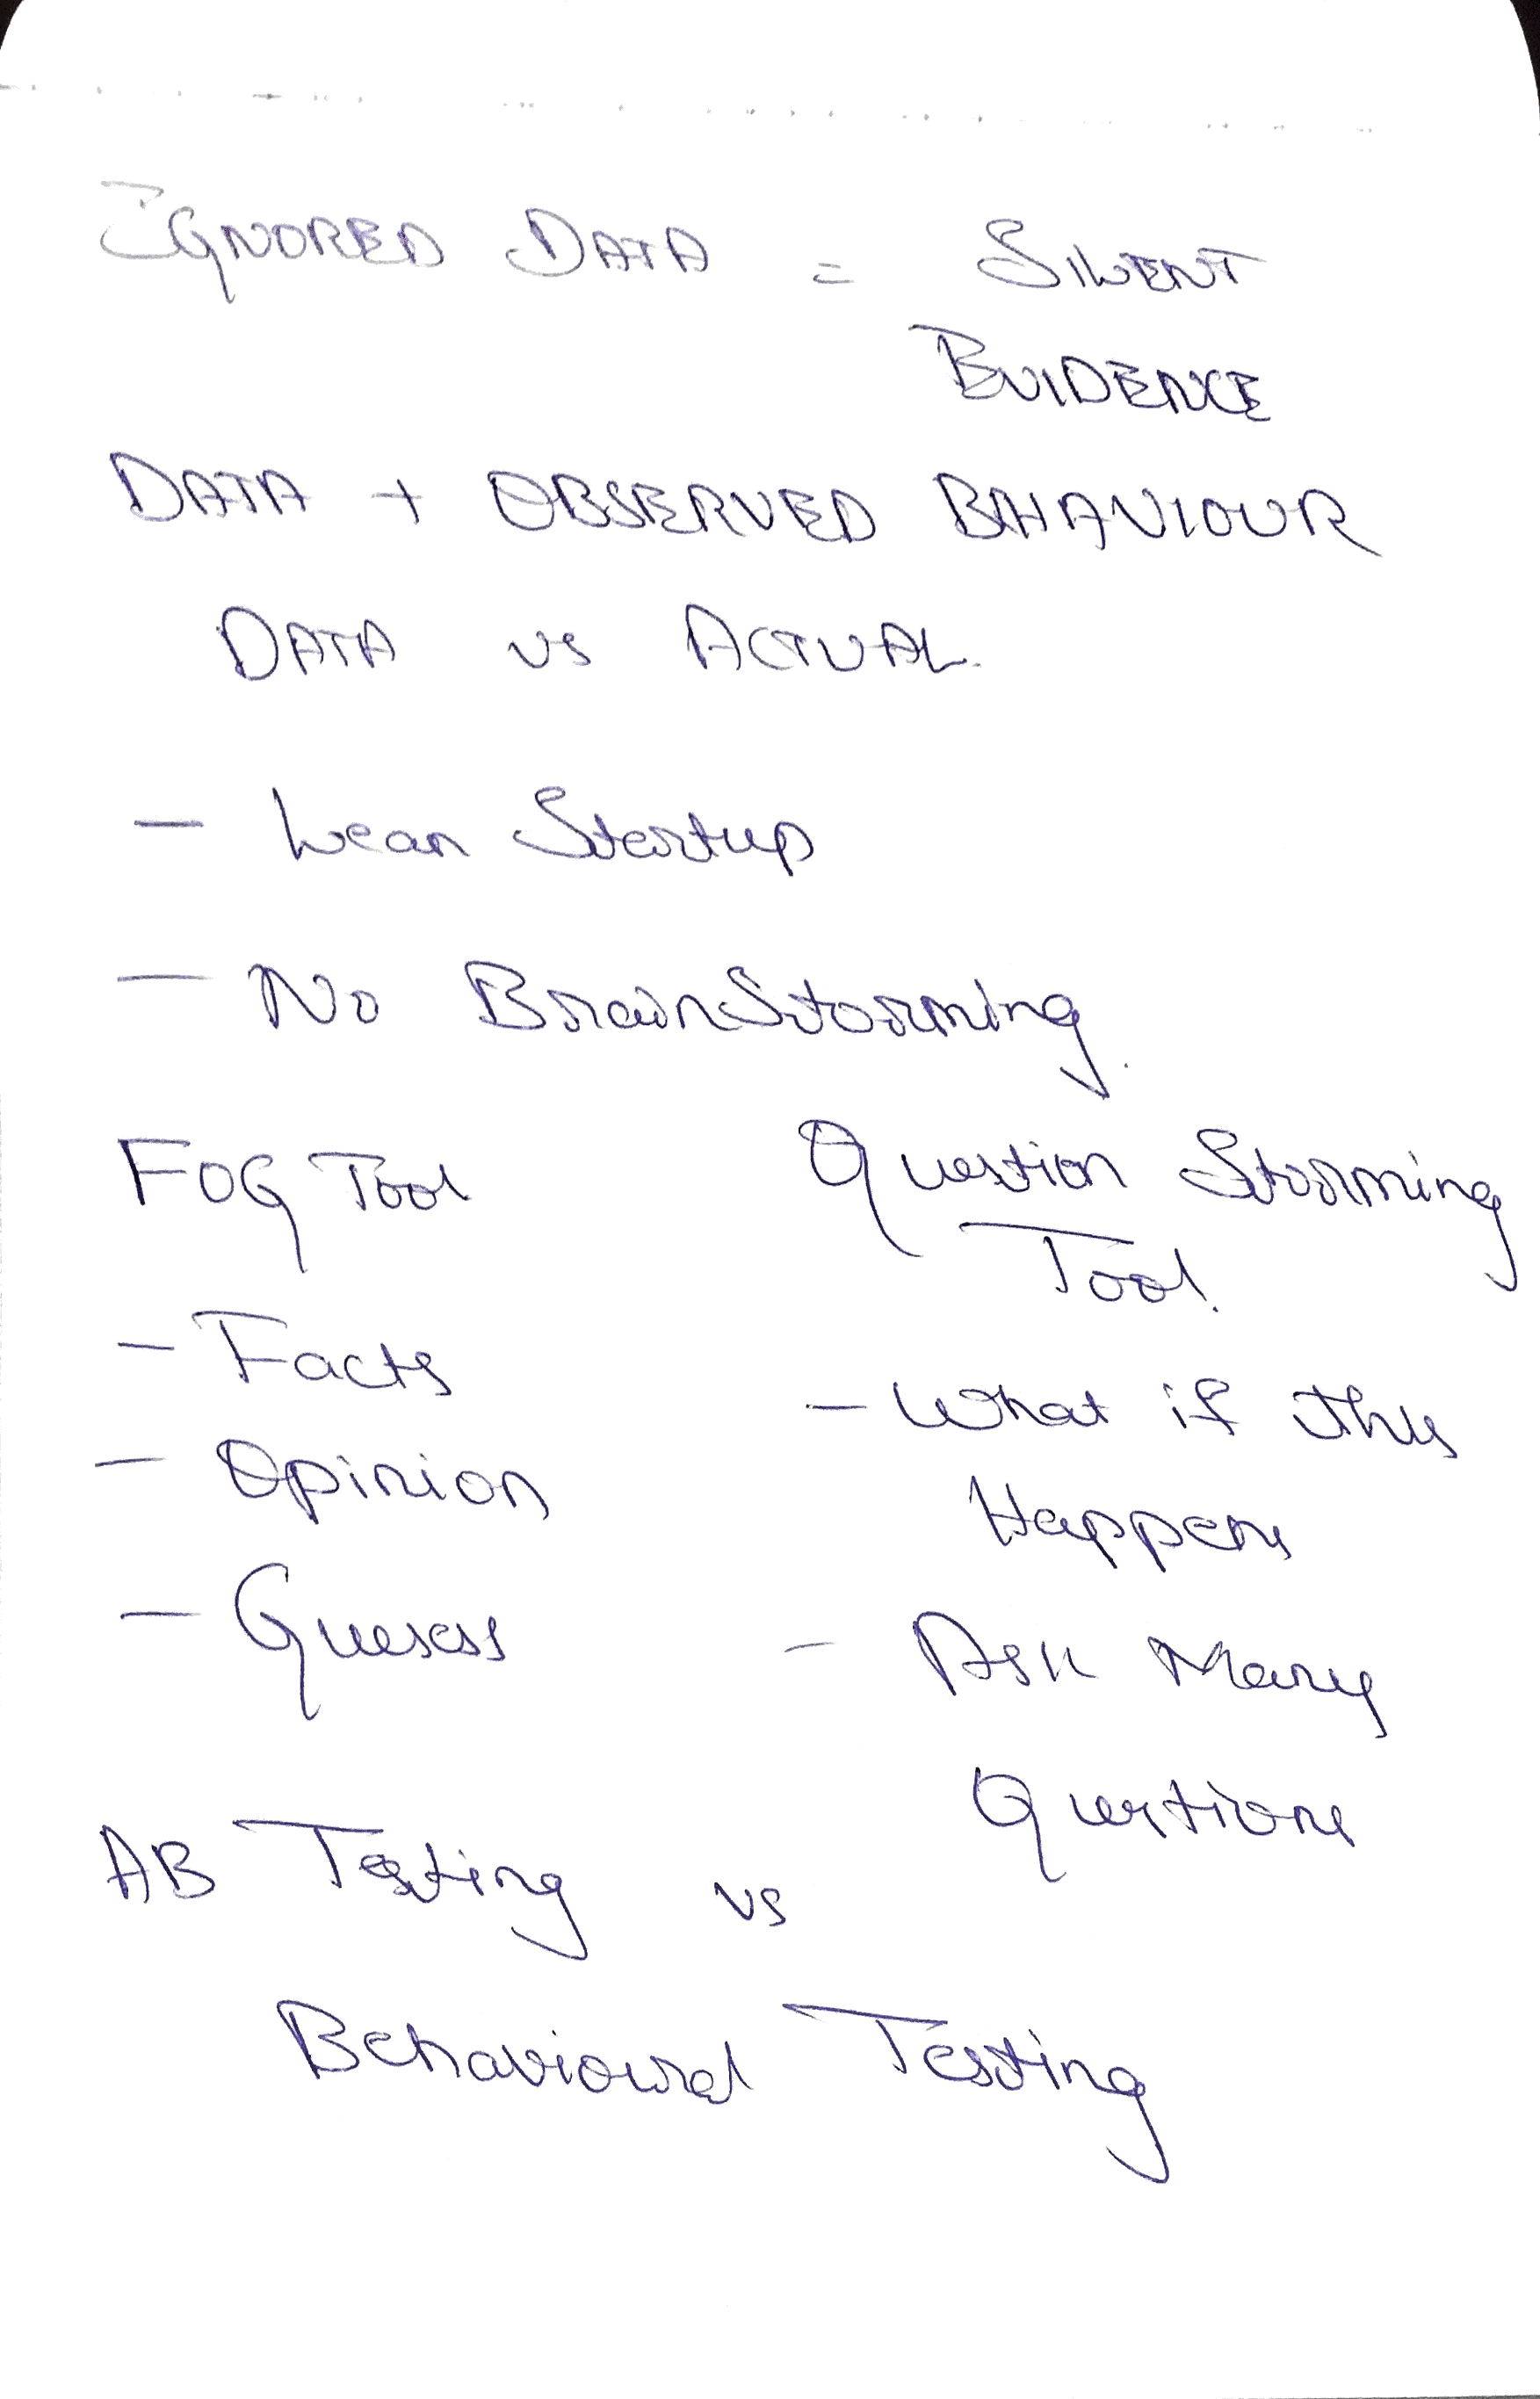 IGNORED DATA = SILENT
EVIDENCE
DATA + OBSERVED BAHAVIOUR
DATA vs ACTUAL.
- Lean Startup
- No BrainStorming.
FOG Tool
- Facts
- Opinion
- Guesess
Question Storming
Tool.
- What if this
Happens
- Ask Many
Questions
AB Testing vs
Behavioural Testing